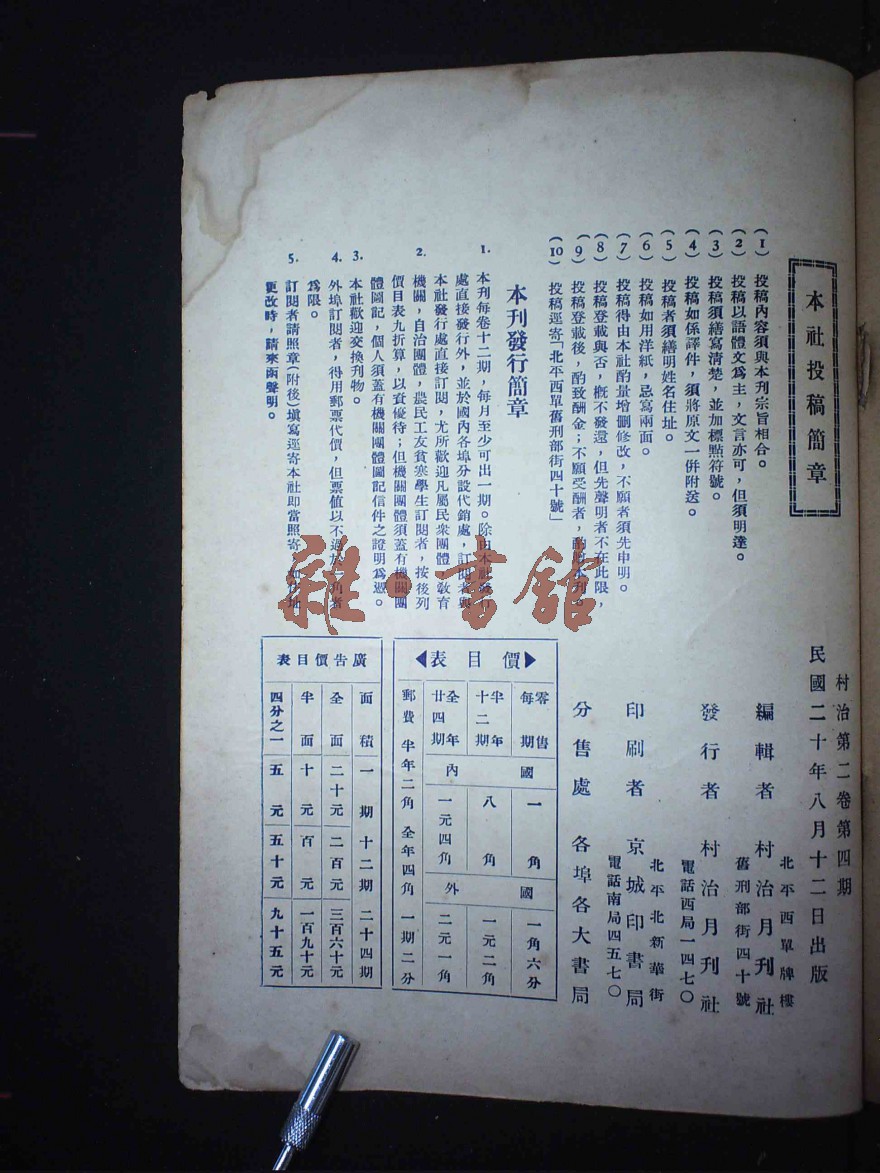 本社投稿簡章
(1) 投稿內容須與本刊宗旨相合。
(2) 投稿以語體文爲主，文言亦可，但須明達。
(3) 投稿須繕寫清楚，並加標點符號。
(4) 投稿如係譯件，須將原文一併附送。
(5) 投稿者須繕明姓名住址。
(6) 投稿如用洋紙，忌寫兩面。
(7) 投稿得由本社酌量增删修改，不願者須先申明。
(8) 投稿登載與否，槪不發還，但先聲明者不在此限，
(9) 投稿登載後，酌致酬金；不願受酬者，酌贈本刊。
(10) 投稿逕寄「北平西單舊刑部街四十號」
本刊發行簡章
1. 本刊每卷十二期，每月至少可出一期。除由本社發行
處直接發行外，並於國內各埠分設代銷處，訂閱者與
本社發行處直接訂閱，尤所歡迎凡屬民衆團體，敎育
2. 機關，自治團體，農民工友貧寒學生訂閱者，按後列
價目表九折算，以資優待；但機關團體須蓋有機關團
體圖記，個人須蓋有機關團體圖記信件之證明爲憑。
3. 本社歡迎交換刊物。
4. 外埠訂閱者，得用郵票代價，但票値以不過於一角者
爲限。
5. 訂閱者請照章(附後)塡寫逕寄本社卽當照寄，如住址
更改時，請來函聲明。
村治第二卷第四期
民國二十年八月十二日出版
編輯者 村治月刊社
北平西單牌樓
舊刑部街四十號
發行者 村治月刊社
電話西局一四七〇
印刷者 京城印書局
北平北新華街
電話南局四五七〇
分售處 各埠各大書局
價目表
零售每期 國內 一角 國外 一角六分
半年十二期 八角 一元二角
全年廿四期 一元四角 二元一角
郵費 半年二角 全年四角 一期二分
廣告價目表
面積 一期 十二期 二十四期
全面 二十元 二百元 三百六十元
半面 十元 百元 一百九十元
四分之一 五元 五十元 九十五元
雜·書館